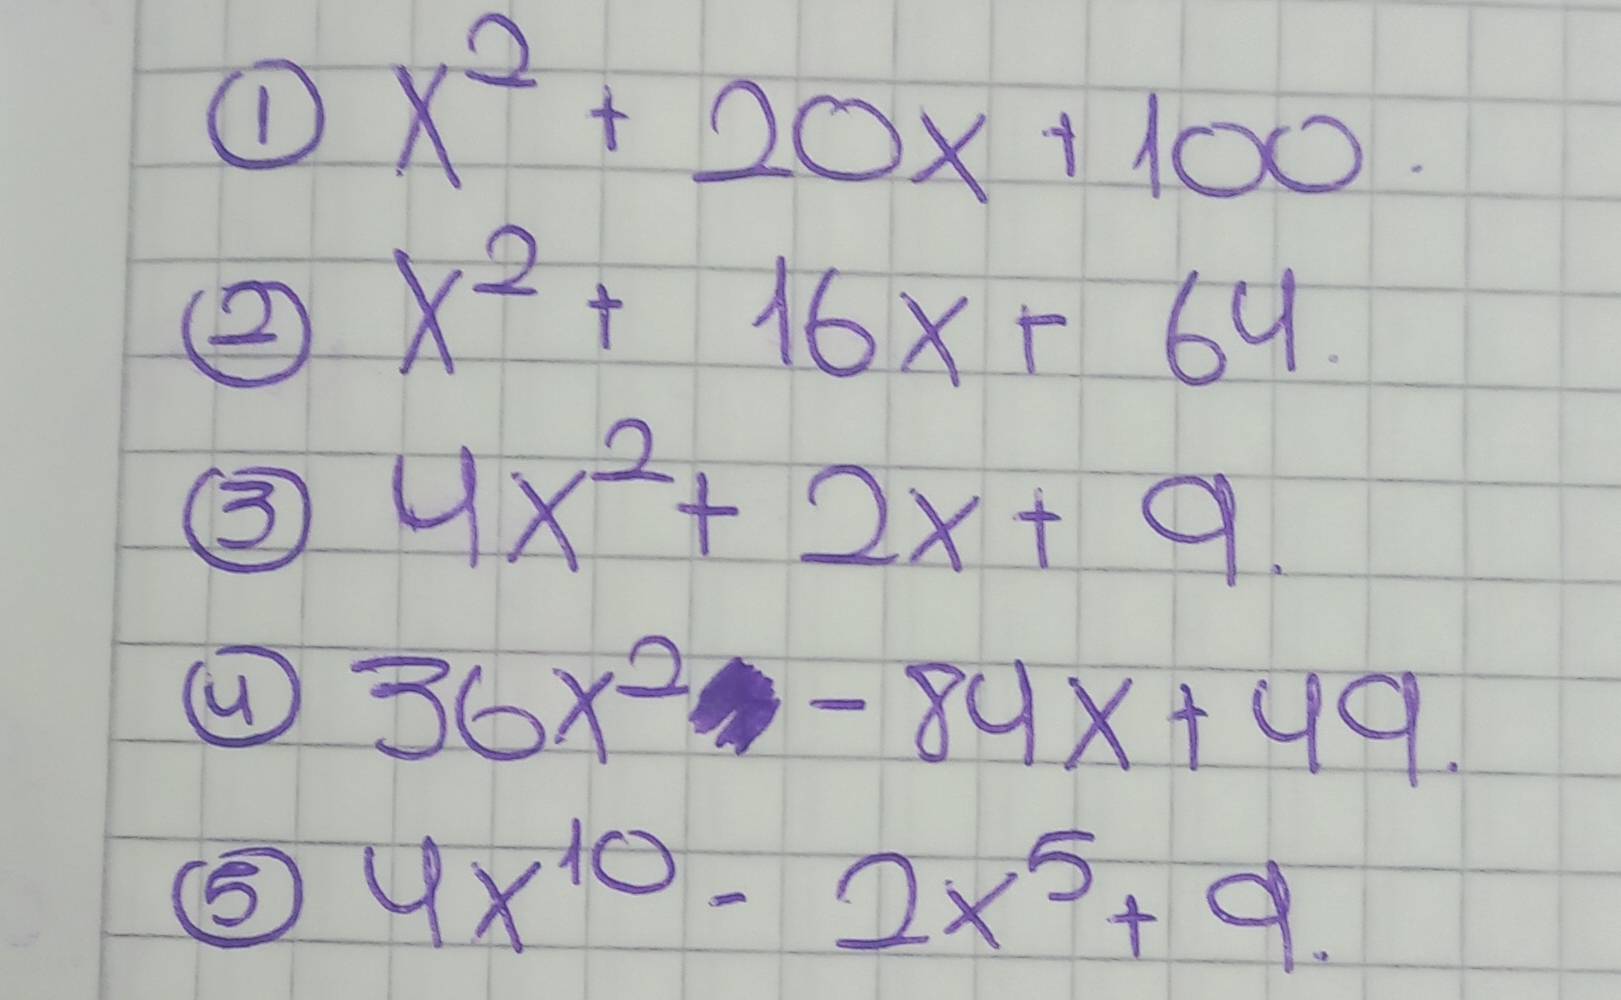 ① x² + 20x + 100.
② x² + 16x + 64.
③ 4x² + 2x + 9.
④ 36x² - 84x + 49.
⑤ 4x¹⁰ - 2x⁵ + 9.